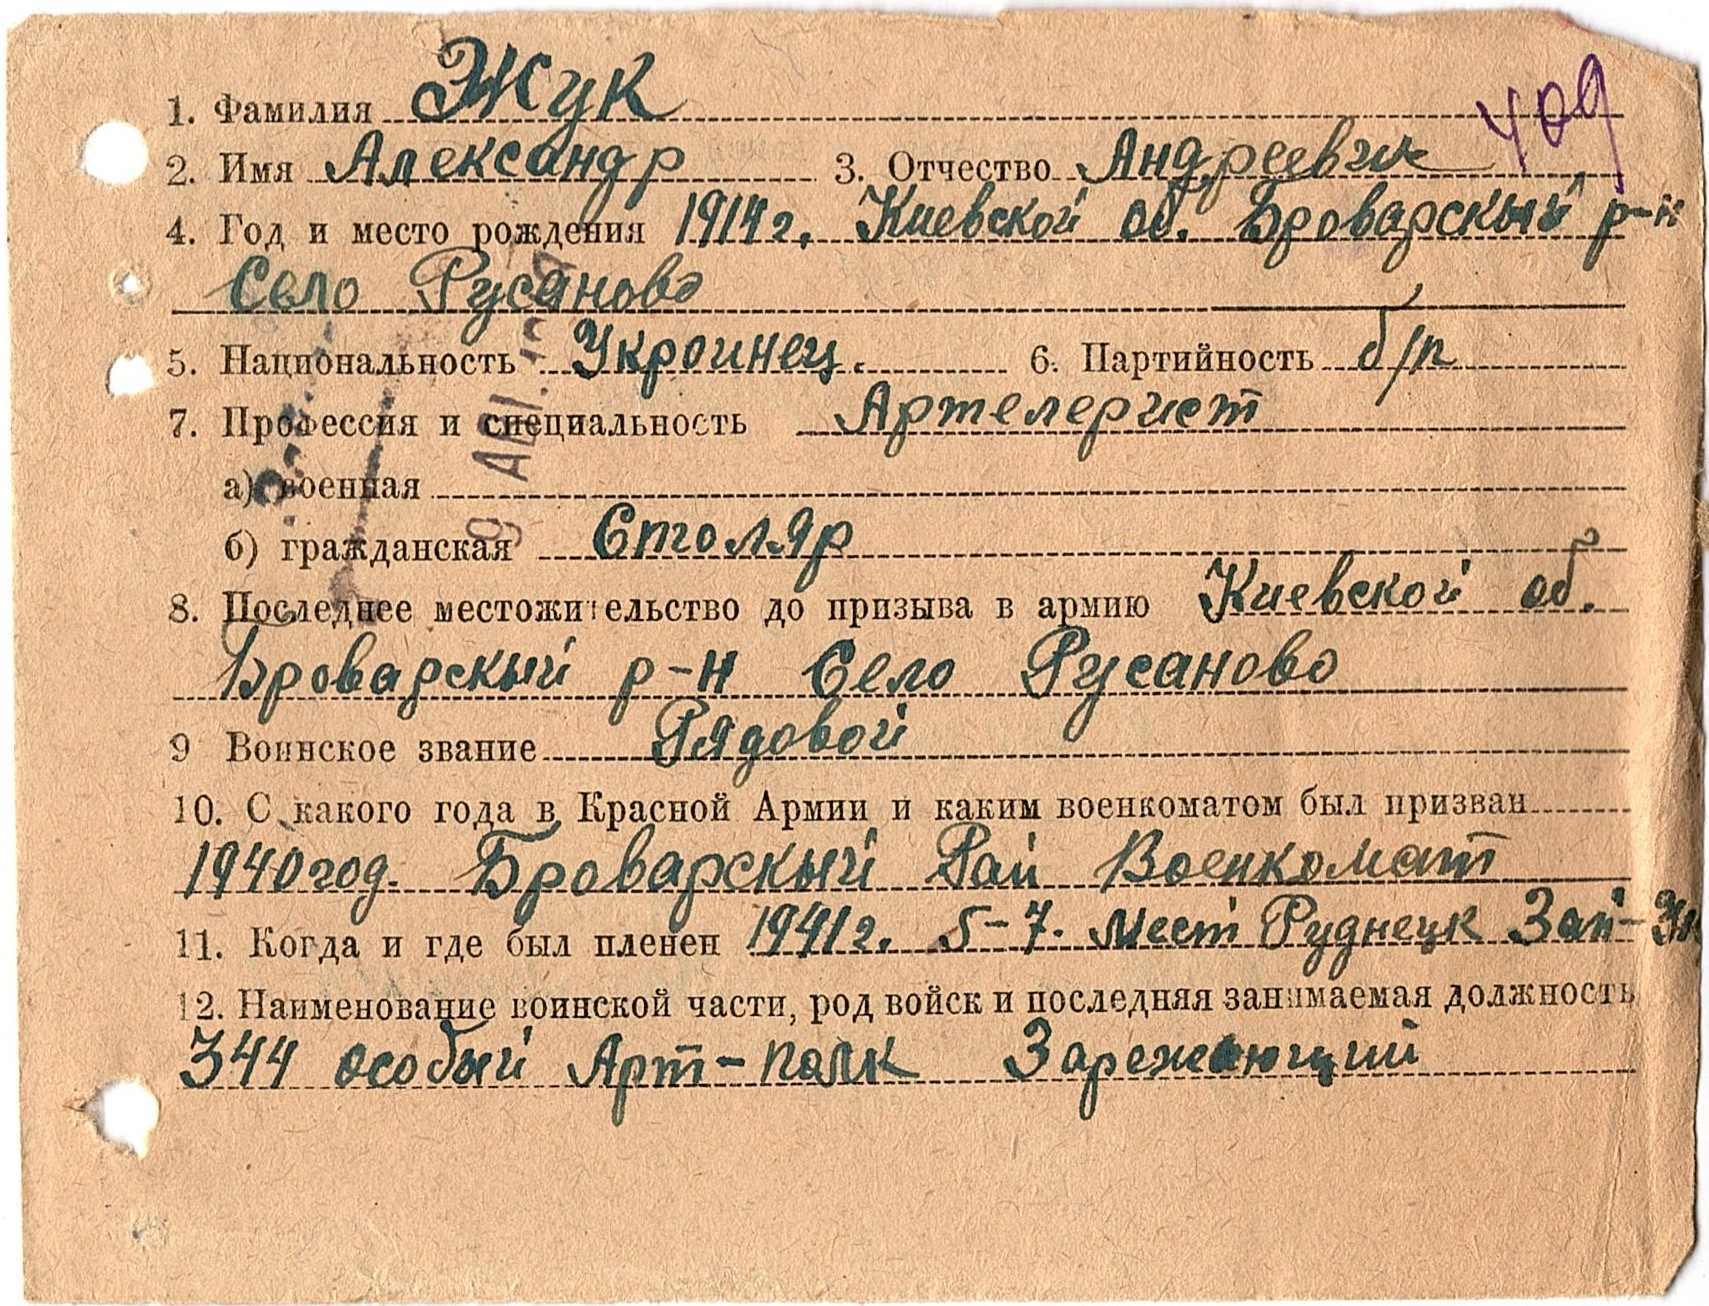 1. Фамилия Жук
409
2. Имя Александр 3. Отчество Андреевич
4. Год и место рождения 1914 г. Киевской об. Броварскый р-н
Село Русаново
5. Национальность Украинец. 6. Партийность б/п
7. Профессия и специальность Артелерист
а) военная
б) гражданская Столяр
9 АВГ.
8. Последнее местожительство до призыва в армию Киевской об.
Броварскый р-н Село Русаново
9 Воинское звание Рядовой
10. С какого года в Красной Армии и каким военкоматом был призван
1940 год. Броварскый Рай Военкомат
11. Когда и где был пленен 1941 г. 5-7. мест Руднецк Зап-
12. Наименование воинской части, род войск и последняя занимаемая должность
344 особый Арт-полк Зарежающий